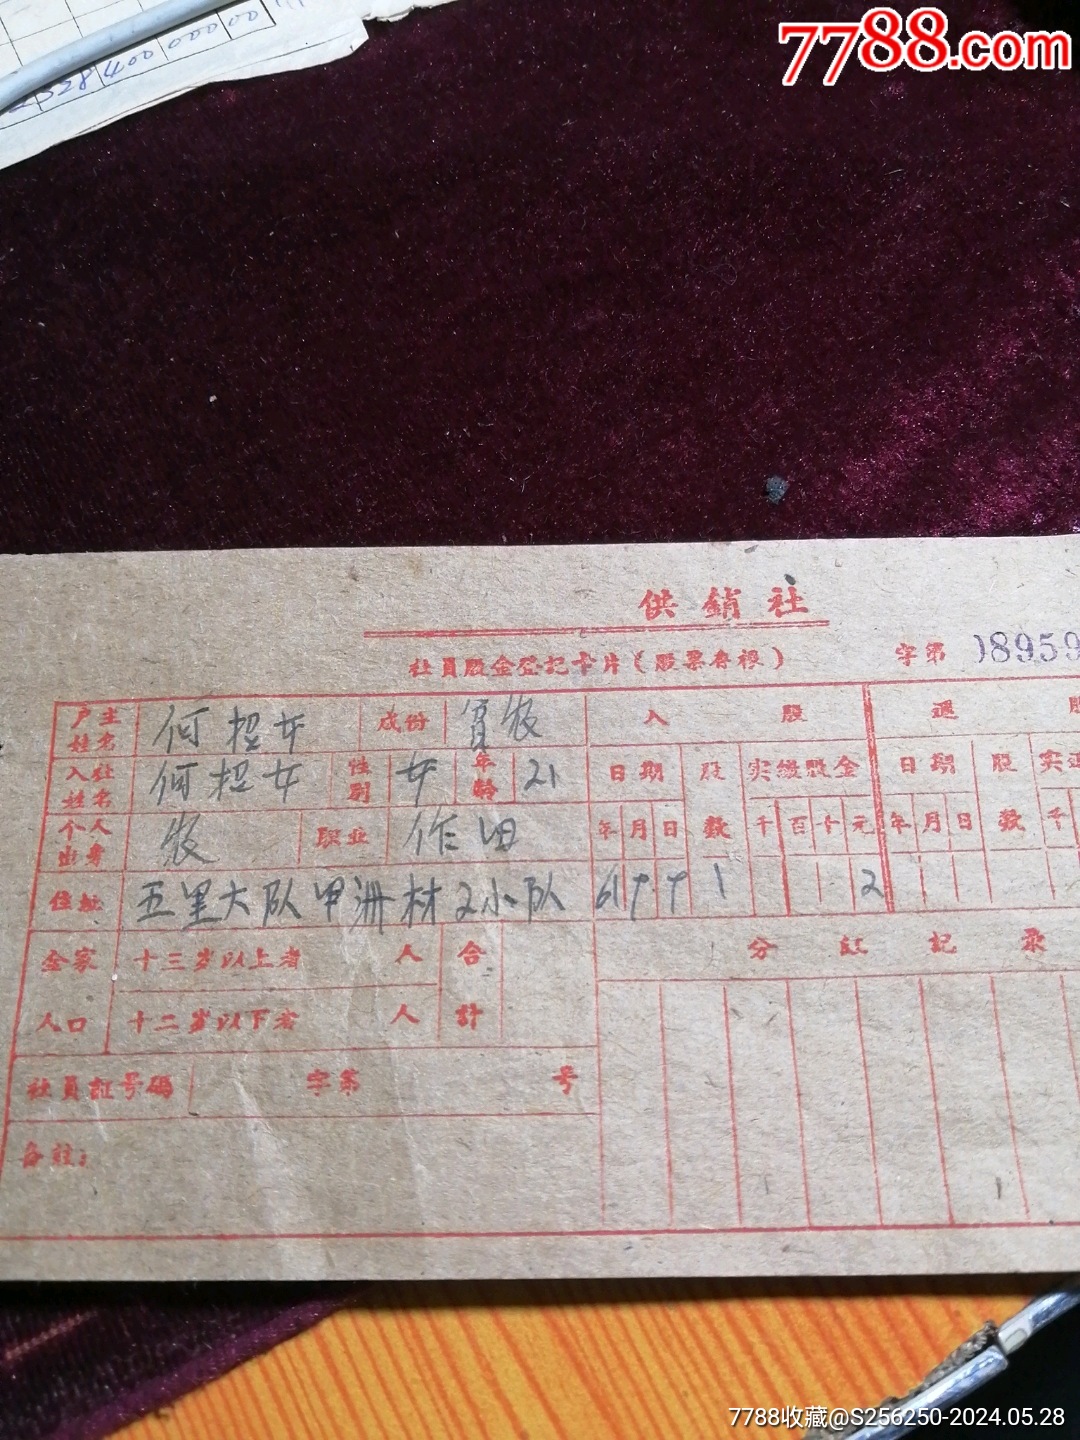 7788.com
供銷社
社員股金登記卡片（股票存根）
字第 08959
户主姓名 何招女 成份 貧农 入股 退股
入社姓名 何招女 性别 女 年龄 21 日期 股数 实缴股金 日期 股数
个人出身 农 职业 作田 年 月 日 千 百 十 元 年 月 日 千
住址 五里大队甲洲村2小队 61 9 9 1 2
全家人口 十三岁以上者 人 合計 分紅記录
十二岁以下者 人
社員証号碼 字第 号
备註：
7788收藏@S256250-2024.05.28